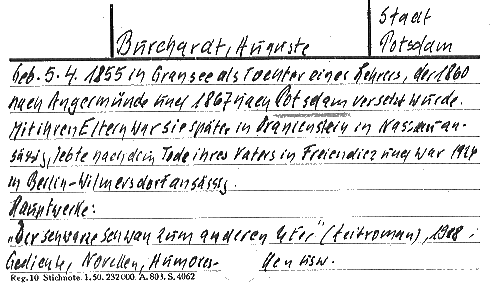 Stadt
Burchardt, Auguste Potsdam
Geb. 5.4. 1855 in Gransee als Tochter eines Lehrers, der 1860
nach Angermünde und 1867 nach Potsdam versetzt wurde.
Mit ihren Eltern war sie später in Dranienstein in Nassau an-
sässig, lebte nach dem Tode ihres Vaters in Freiendiez und war 1924
in Berlin-Wilmersdorf ansässig.
Hauptwerke:
„Der schwarze Schwan zum anderen Ufer" (Zeitroman), 1908;
Gedichte, Novellen, Humores- ken usw.
Reg. 10 Stichnote. 1. 50. 232 000. A. 803. S. 4062